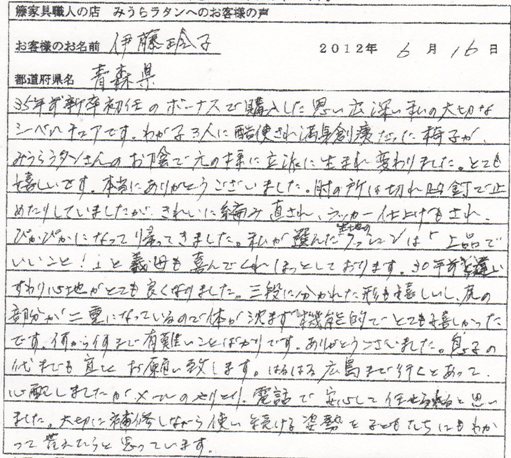 籐家具職人の店 みうらラタンへのお客様の声
お客様のお名前 伊藤玲子 2012年 6月 16日
都道府県名 青森県
35年前新卒初任のボーナスで購入した思い出深い私の大切な
シーベルチェアです。わが子3人に酷使され満身創痍だった椅子が、
みうらラタンさんのお陰で元の様に立派に生まれ変わりました。とても
嬉しいです。本当にありがとうございました。肘の所は切れ、釘で止
めたりしていましたが、きれいに編み直され、ラッカー仕上げもされ、
ぴかぴかになって帰ってきました。私が選んだ生地のクッションは「上品で
いいこと!」と義母も喜んでくれほっとしております。30年前と違い
すわり心地がとても良くなりました。三段に分かれた形も嬉しいし、尻の
部分が二重になっているので体が沈まず機能的でとても嬉しかった
です。何から何まで有難いことばかりです。ありがとうございました。息子の
代までも宜しくお願い致します。はるばる広島まで行くとあって、
心配しましたがメールのやりとり、電話で安心して任せられると思い
ました。大切に補修しながら使い続ける姿勢を子どもたちにもわか
って貰えたらと思っています。